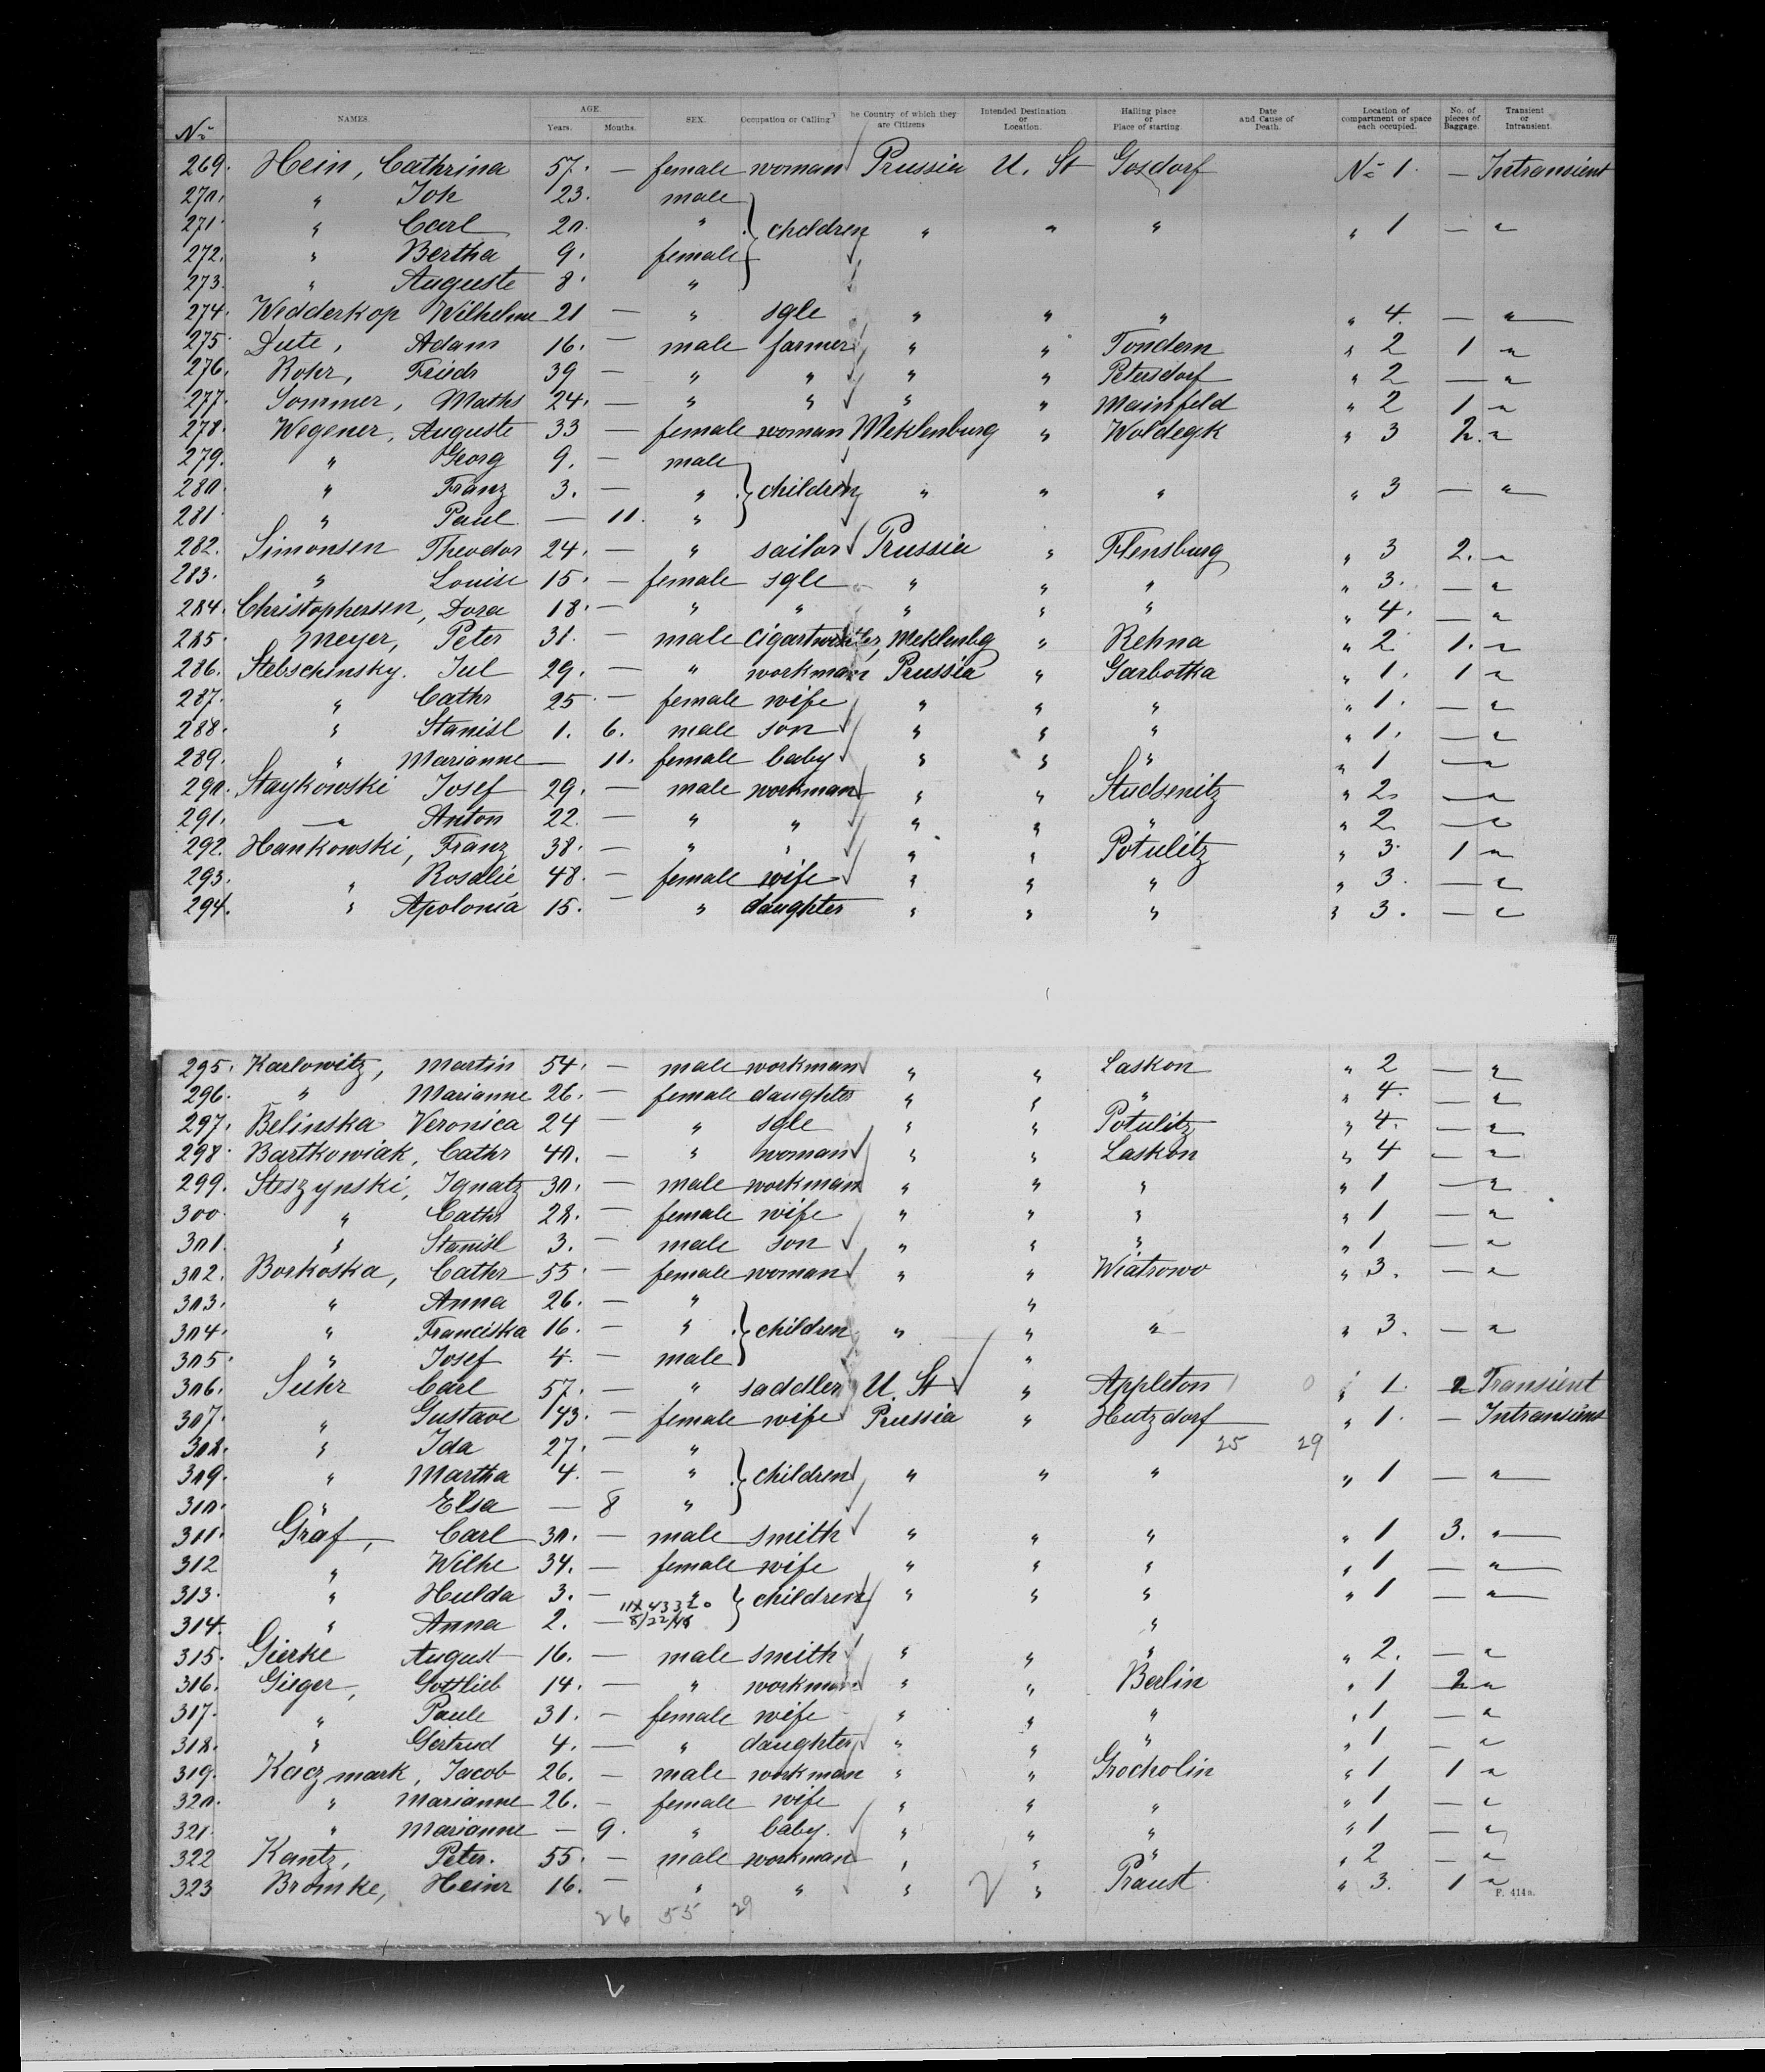 NAMES. AGE. SEX. Occupation or Calling The Country of which they are Citizens Intended Destination or Location. Hailing place or Place of starting. Date and Cause of Death. Location of compartment or space each occupied. No. of pieces of Baggage. Transient or Intransient.
No Years. Months.
269. Hein, Cathrina 57. — female woman Prussia U. St Gosdorf No 1. — Intransient
270. " Joh 23. male
271. " Carl 20. " children " " " " 1 — "
272. " Bertha 9. female
273. " Auguste 8. "
274. Wedderkop Wilhelme 21 — " sgle " " " " 4. — "
275. Dute, Adam 16. — male farmer " " Tondern " 2 1 "
276. Rohr, Friedr 39 — " " " " Petersdorf " 2 — "
277. Sommer, Maths 24. — " " " " Mainfeld " 2 1 "
278. Wegener, Auguste 33 — female woman Meklenburg " Woldegk " 3 2. "
279. " Georg 9. — male
280. " Franz 3. — " children " " " " 3 — "
281. " Paul — 11. "
282. Simonsen Theodor 24. — " sailor Prussia " Flensburg " 3 2. "
283. " Louise 15. — female sgle " " " " 3. — "
284. Christophersen, Dora 18. — " " " " " " 4. — "
285. Meyer, Peter 31. — male Meklenbg " Rehna " 2 1. "
286. Stebschinsky. Jul 29. — " workman Prussia " Garbotka " 1. 1 "
287. " Cathr 25 — female wife " " " " 1. — "
288. " Stanisl 1. 6. male son " " " " 1. — "
289. " Marianne — 11. female baby " " " " 1 — "
290. Staykowski Josef 29. — male workman " " Studsenitz " 2. — "
291. " Anton 22. — " " " " " " 2 — "
292. Hankowski, Franz 38. — " " " " Potulitz " 3. 1 "
293. " Rosalie 48. — female wife " " " " 3. — "
294. " Apolonia 15. — " daughter " " " " 3. — "
295. Karlowitz, Martin 54. — male workman " " Laskon " 2 — "
296. " Marianne 26. — female daughter " " " " 4. — "
297. Belinska Veronica 24 — " sgle " " Potulitz " 4. — "
298. Bartkowiak, Cathr 40. — " woman " " Laskon " 4 — "
299. Steszynski, Ignatz 30. — male workman " " " " 1 — "
300. " Cathr 28. — female wife " " " " 1 — "
301. " Stanisl 3. — male son " " " " 1 — "
302. Borkoska, Cathr 55 — female woman " " Wiatrowo " 3. — "
303. " Anna 26. — " "
304. " Franciska 16. — " children " " " " 3. — "
305. " Josef 4. — male "
306. Suhr Carl 57. — " saddler U. St " Appleton " 1. 2 Transient
307. " Gustave 43. — female wife Prussia " Hutzdorf " 1. — Intransient
308. " Ida 27. — " 25 29
309. " Martha 4. — " children " " " " 1 — "
310. " Elsa — 8 "
311. Graf, Carl 30. — male smith " " " " 1 3. "
312 " Wilhe 34. — female wife " " " " 1 — "
313. " Hulda 3. — " children " " " " 1 — "
314. " Anna 2. — 8/22/46 "
315. Gierke August 16. — male smith " " " " 2. — "
316. Gieger, Gottlieb 14. — " workman " " Berlin " 1 2 "
317. " Paule 31. — female wife " " " " 1 — "
318. " Gertrud 4. — " daughter " " " " 1 — "
319. Kaczmark, Jacob 26. — male workman " " Grocholin " 1 1 "
320. " Marianne 26. — female wife " " " " 1 — "
321. " Marianne — 9. " baby. " " " " 1 — "
322 Kantz, Peter. 55. — male workman " " " " 2 — "
323 Bromke, Heinr 16. — " " " " Praust " 3. 1 "
F. 414a.
26 55 29